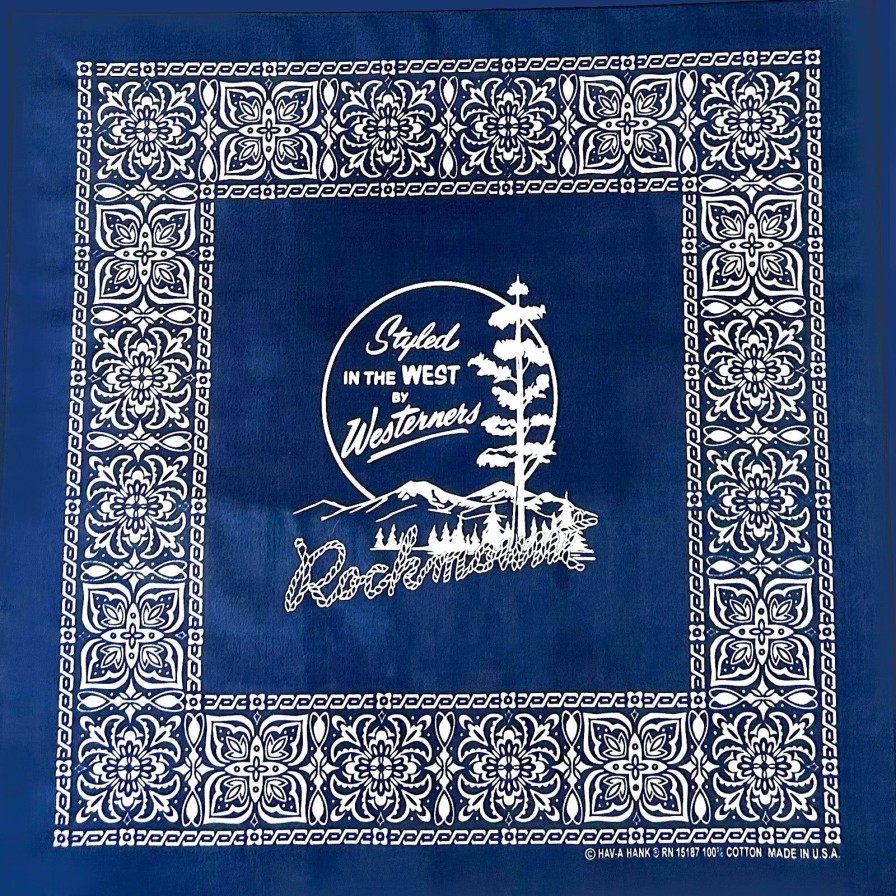 Styled
IN THE WEST
BY
Westerners
Rockmount
© HAV-A HANK ® RN 15187 100% COTTON MADE IN U.S.A.